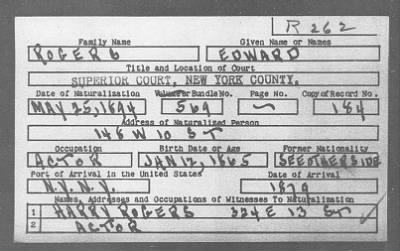 R 262
Family Name Given Name or Names
ROGERS EDWARD
Title and Location of Court
SUPERIOR COURT, NEW YORK COUNTY.
Date of Naturalization Volume or Bundle No. Page No. Copy of Record No.
MAY 25, 1894 569 ~ 184
Address of Naturalized Person
146 W 10 ST
Occupation Birth Date or Age Former Nationality
ACTOR JAN 12, 1865 SEE OTHER SIDE
Port of Arrival in the United States Date of Arrival
N.Y. N.Y. 1879
Names, Addresses and Occupations of Witnesses To Naturalization
1 HARRY ROGERS 324 E 13 ST
2 ACTOR